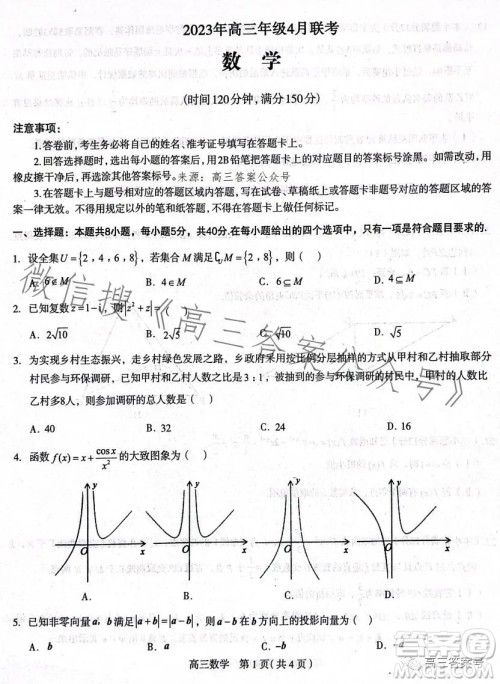 2023年高三年级4月联考
数 学
(时间120分钟,满分150分)
注意事项:
1.答卷前,考生务必将自己的姓名、准考证号填写在答题卡上。
2.回答选择题时,选出每小题的答案后,用2B铅笔把答题卡上的对应题目的答案标号涂黑。如需改动,用
橡皮擦干净后,再选涂其他答案标号。 来源:高三答案公众号
3.答题卡上与题号相对应的答题区域内答题,写在试卷、草稿纸上或答题卡非题号对应的答题区域的答
案一律无效。不得用规定以外的笔和纸答题,不得在答题卡上做任何标记。
一、选择题:本题共8小题,每小题5分,共40分.在给出的四个选项中,只有一项符合题目要求的.
1. 设全集U={2,4,6,8},若集合M满足∁UM={2,8},则( )
A. 6∉M B. 4∈M C. 6⊆M D. 4⊆M
2. 已知复数z=1-i,则
A. 2√10 B. 2√5 C. √10 D. √5
3. 为实行乡村生态振兴,走乡村绿色发展之路,乡政府采用按比例分层抽样的方式从甲村和乙村抽取部
分村民参与环保调研,已知甲村和乙村人数之比是3:1,被抽取到参与环保调研的村民中,甲村的人数比
乙村多8人,则参加调研的总人数是( )
A. 40 B. 32 C. 24 D. 16
4. 函数f(x)=x+cosx/x²的大致图象为( )
O x y O x y O x y O x y
A. B. C. D.
5. 已知非零向量a,b满足|a+b|=|a-b|,则a-b在b方向上的投影向量为( )
A. -b B. b C. -a D. a
高三数学 第1页(共4页)
微信搜《高三答案公众号》
高三答案号